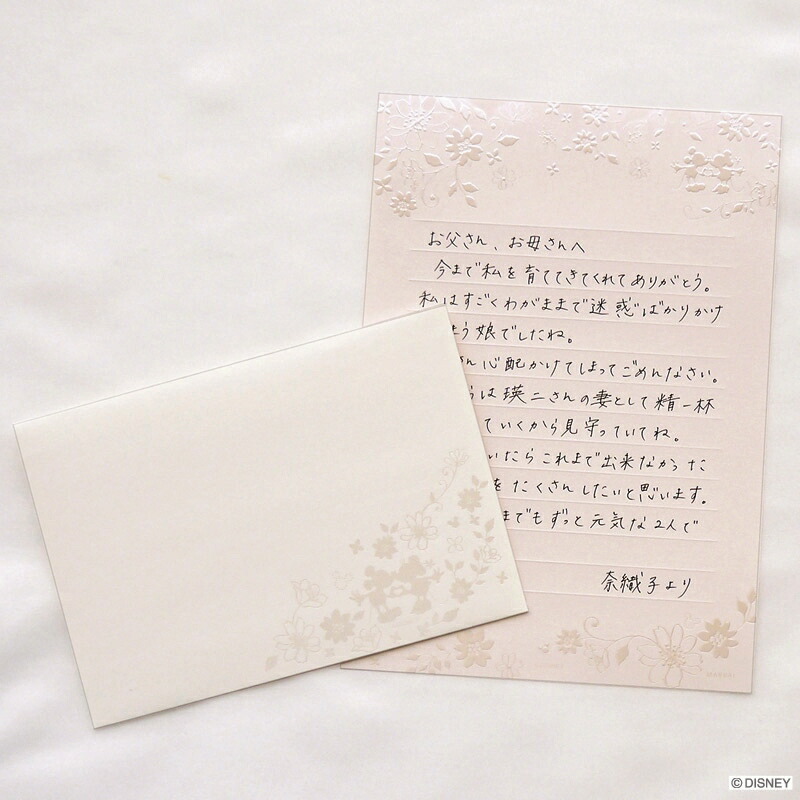 お父さん、お母さんへ
今まで私を育ててきてくれてありがとう。
私はすごくわがままで迷惑ばかりかけ
う娘でしたね。
さん心配かけてしまってごめんなさい。
は瑛二さんの妻として精一杯
ていくから見守っていてね。
いたらこれまで出来なかった
をたくさんしたいと思います。
までもずっと元気な2人で
奈織子より
© DISNEY